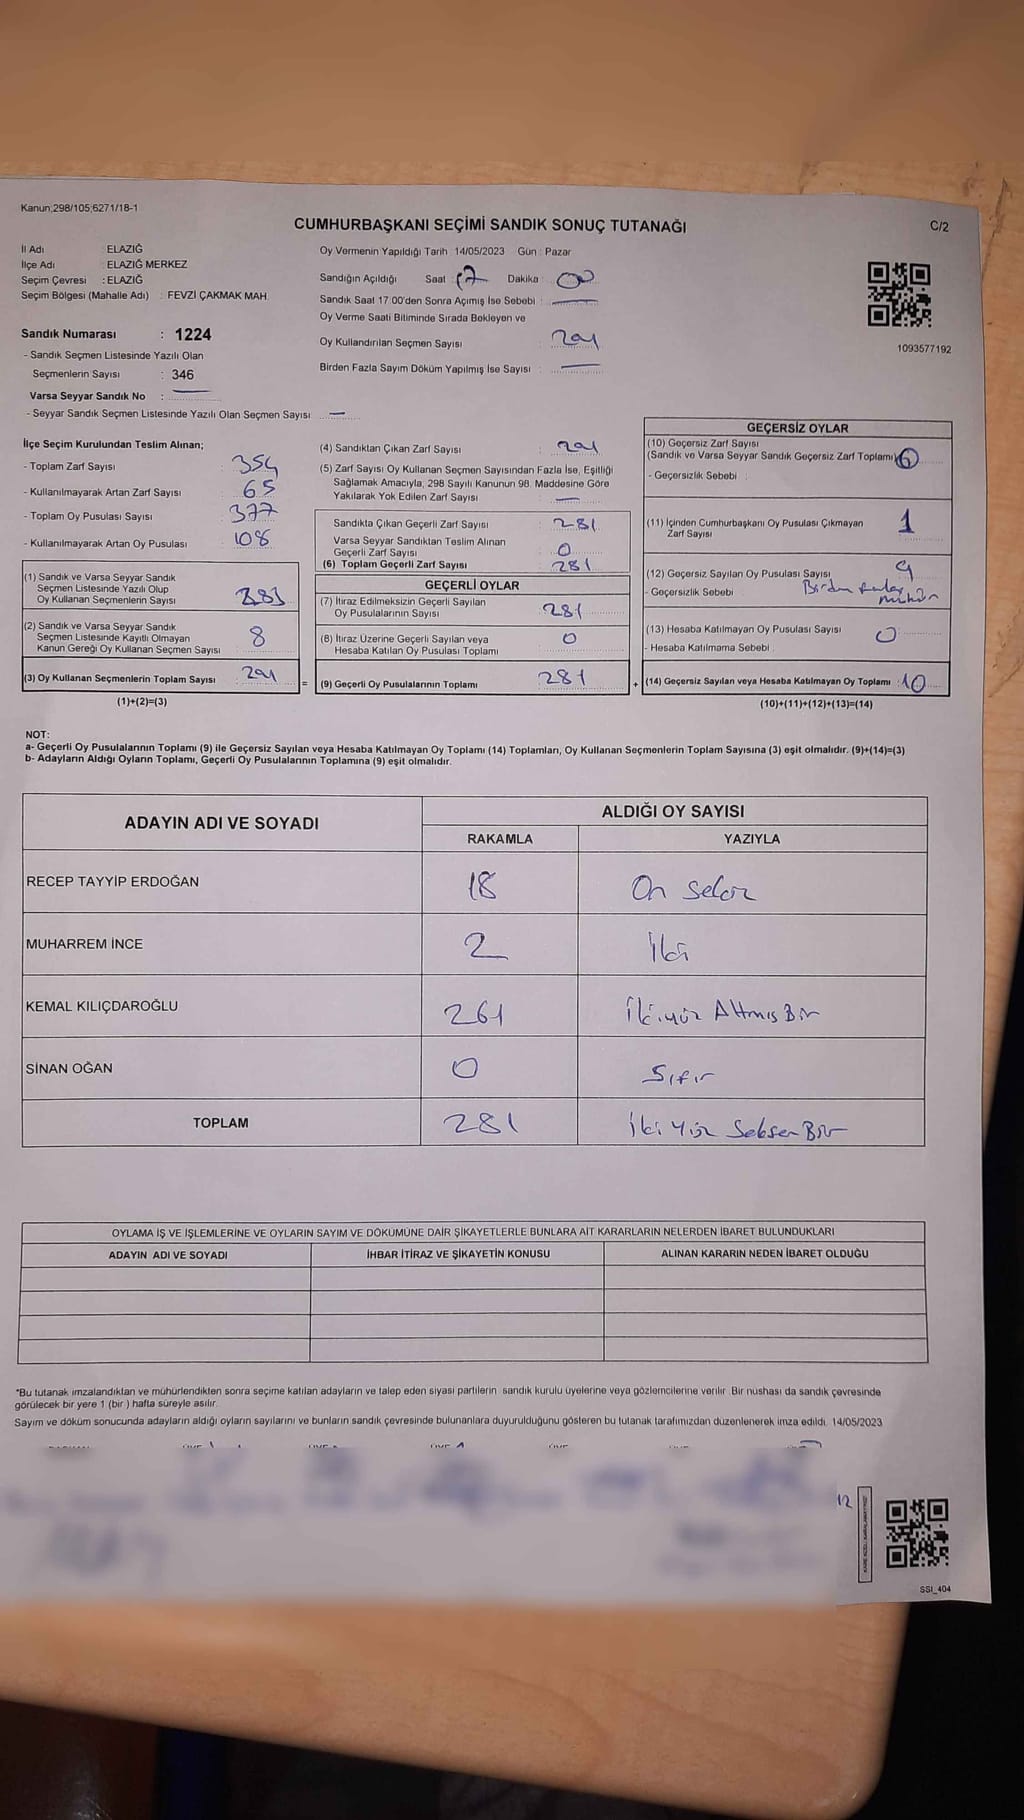 Kanun;298/105;6271/18-1
CUMHURBAŞKANI SEÇİMİ SANDIK SONUÇ TUTANAĞI
C/2
İl Adı : ELAZIĞ
İlçe Adı : ELAZIĞ MERKEZ
Seçim Çevresi : ELAZIĞ
Seçim Bölgesi (Mahalle Adı) : FEVZİ ÇAKMAK MAH.
Sandık Numarası : 1224
- Sandık Seçmen Listesinde Yazılı Olan
Seçmenlerin Sayısı : 346
Varsa Seyyar Sandık No : —
- Seyyar Sandık Seçmen Listesinde Yazılı Olan Seçmen Sayısı : —
Oy Vermenin Yapıldığı Tarih : 14/05/2023 Gün : Pazar
Sandığın Açıldığı Saat : 17 Dakika : 00
Sandık Saat 17.00'den Sonra Açımış İse Sebebi : —
Oy Verme Saati Bitiminde Sırada Bekleyen ve
Oy Kullandırılan Seçmen Sayısı : 291
Birden Fazla Sayım Döküm Yapılmış İse Sayısı : —
1093577192
İlçe Seçim Kurulundan Teslim Alınan;
- Toplam Zarf Sayısı : 354
- Kullanılmayarak Artan Zarf Sayısı : 65
- Toplam Oy Pusulası Sayısı : 377
- Kullanılmayarak Artan Oy Pusulası : 108
(1) Sandık ve Varsa Seyyar Sandık
Seçmen Listesinde Yazılı Olup
Oy Kullanan Seçmenlerin Sayısı : 283
(2) Sandık ve Varsa Seyyar Sandık
Seçmen Listesinde Kayıtlı Olmayan
Kanun Gereği Oy Kullanan Seçmen Sayısı : 8
(3) Oy Kullanan Seçmenlerin Toplam Sayısı : 291
(1)+(2)=(3)
=
(4) Sandıktan Çıkan Zarf Sayısı : 291
(5) Zarf Sayısı Oy Kullanan Seçmen Sayısından Fazla İse, Eşitliği
Sağlamak Amacıyla, 298 Sayılı Kanunun 98. Maddesine Göre
Yakılarak Yok Edilen Zarf Sayısı : —
Sandıkta Çıkan Geçerli Zarf Sayısı : 281
Varsa Seyyar Sandıktan Teslim Alınan
Geçerli Zarf Sayısı : 0
(6) Toplam Geçerli Zarf Sayısı : 281
GEÇERLİ OYLAR
(7) İtiraz Edilmeksizin Geçerli Sayılan
Oy Pusulalarının Sayısı : 281
(8) İtiraz Üzerine Geçerli Sayılan veya
Hesaba Katılan Oy Pusulası Toplamı : 0
(9) Geçerli Oy Pusulalarının Toplamı : 281
+
GEÇERSİZ OYLAR
(10) Geçersiz Zarf Sayısı
(Sandık ve Varsa Seyyar Sandık Geçersiz Zarf Toplamı) : 0
- Geçersizlik Sebebi :
(11) İçinden Cumhurbaşkanı Oy Pusulası Çıkmayan
Zarf Sayısı : 1
(12) Geçersiz Sayılan Oy Pusulası Sayısı : 9
- Geçersizlik Sebebi : Birden fazla
mühür
(13) Hesaba Katılmayan Oy Pusulası Sayısı : 0
- Hesaba Katılmama Sebebi :
(14) Geçersiz Sayılan veya Hesaba Katılmayan Oy Toplamı : 10
(10)+(11)+(12)+(13)=(14)
NOT:
a- Geçerli Oy Pusulalarının Toplamı (9) ile Geçersiz Sayılan veya Hesaba Katılmayan Oy Toplamı (14) Toplamları, Oy Kullanan Seçmenlerin Toplam Sayısına (3) eşit olmalıdır. (9)+(14)=(3)
b- Adayların Aldığı Oyların Toplamı, Geçerli Oy Pusulalarının Toplamına (9) eşit olmalıdır.
ADAYIN ADI VE SOYADI
ALDIĞI OY SAYISI
RAKAMLA YAZIYLA
RECEP TAYYİP ERDOĞAN 18 On sekiz
MUHARREM İNCE 2 İki
KEMAL KILIÇDAROĞLU 261 İkiyüz Altmış Bir
SİNAN OĞAN 0 Sıfır
TOPLAM 281 İki Yüz Seksen Bir
OYLAMA İŞ VE İŞLEMLERİNE VE OYLARIN SAYIM VE DÖKÜMÜNE DAİR ŞİKAYETLERLE BUNLARA AİT KARARLARIN NELERDEN İBARET BULUNDUKLARI
ADAYIN ADI VE SOYADI İHBAR İTİRAZ VE ŞİKAYETİN KONUSU ALINAN KARARIN NEDEN İBARET OLDUĞU
*Bu tutanak imzalandıktan ve mühürlendikten sonra seçime katılan adayların ve talep eden siyasi partilerin sandık kurulu üyelerine veya gözlemcilerine verilir. Bir nushası da sandık çevresinde
görülecek bir yere 1 (bir ) hafta süreyle asılır.
Sayım ve döküm sonucunda adayların aldığı oyların sayılarını ve bunların sandık çevresinde bulunanlara duyurulduğunu gösteren bu tutanak tarafımızdan düzenlenerek imza edildi. 14/05/2023
12
SSI_404